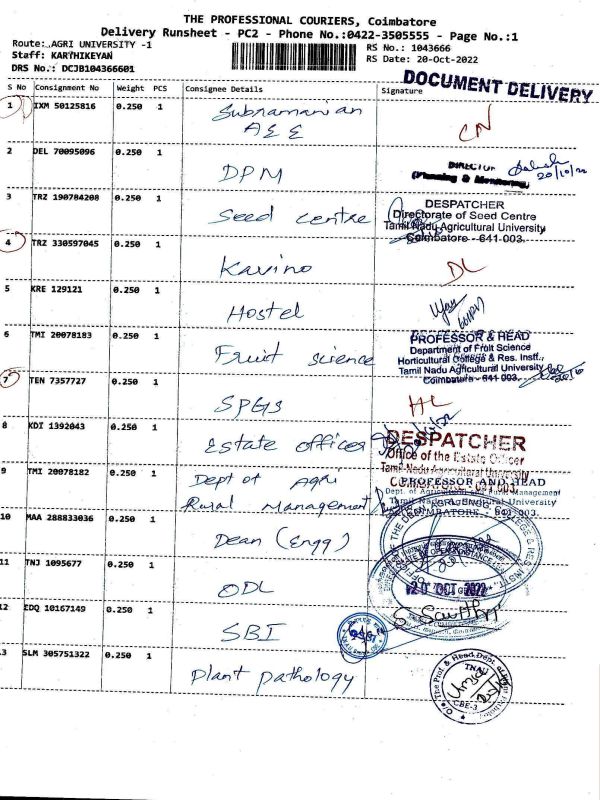 THE PROFESSIONAL COURIERS, Coimbatore
Delivery Runsheet - PC2 - Phone No.:0422-3505555 - Page No.:1
Route: AGRI UNIVERSITY -1
RS No.: 1043666
Staff: KARTHIKEYAN
RS Date: 20-Oct-2022
DRS No.: DCJB104366601
DOCUMENT DELIVERY
S No Consignment No Weight PCS Consignee Details Signature
1 IXM 50125816 0.250 1 Subramanian
AEE CN
2 DEL 70095096 0.250 1 DPM
DIRECTOR
(Planning & Monitoring)
20/10/22
3 TRZ 190784208 0.250 1 Seed centre
DESPATCHER
Directorate of Seed Centre
Tamil Nadu Agricultural University
Coimbatore - 641 003.
4 TRZ 330597045 0.250 1 Kavino DL
5 KRE 129121 0.250 1 Hostel
6 TMI 20078183 0.250 1 Fruit science
PROFESSOR & HEAD
Department of Fruit Science
Horticultural College & Res. Instt.,
Tamil Nadu Agricultural University
Coimbatore - 641 003.
7 TEN 7357727 0.250 1 SPGS HL
8 KDI 1392043 0.250 1 Estate officer
DESPATCHER
Office of the Estate Officer
Tamil Nadu Agricultural University
COIMBATORE - 641 003.
9 TMI 20078182 0.250 1 Dept of Agri
Rural Management
PROFESSOR AND HEAD
Dept. of Agricultural and Rural Management
Tamil Nadu Agricultural University
COIMBATORE - 641 003.
10 MAA 288833036 0.250 1 Dean (Engg)
11 TNJ 1095677 0.250 1 ODL
20 OCT 2022
12 EDQ 10167149 0.250 1 SBI
13 SLM 305751322 0.250 1 Plant pathology
TNAU
CBE-3